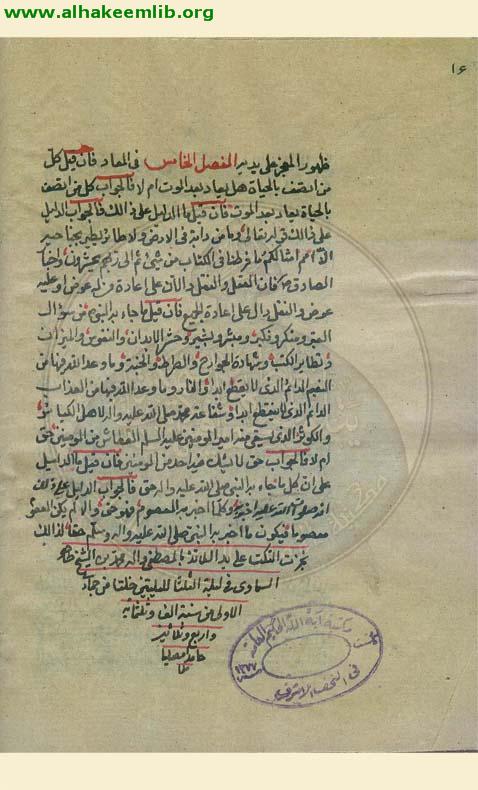 www.alhakeemlib.org
١٤
ظهور المعجز على يديه الفصل الخامس في المعاد فان قيل كل
من اتصف بالحياة هل يعاد بعد الموت ام لا فالجواب كل من اتصف
بالحياة يعاد بعد الموت فان قيل ما الدليل على ذالك فالجواب الدليل
على ذالك قوله تعالى وما من دابة في الارض ولا طائر يطير بجناحيه
الا امم امثالكم ما فرطنا في الكتاب من شيئ ثم الى ربهم يحشرون
فان العقل والنقل دالان على اعادة من له عوض وعليه
عوض والنقل دال على اعادة الجميع فان قيل ما جاء به النبي من سؤال
القبر ومنكر ونكير ومبشر وبشير وحشر الابدان والنفوس والميزان
وتطاير الكتب وشهادة الجوارح والصراط والجنة وما وعد الله فيها من
النعيم الدائم الذي لا ينقطع ابدا والنار وما وعد الله فيها من العذاب
الدائم الذي لا ينقطع ابدا وشفاعة محمد صلى الله عليه واله لاهل الكبائر
والكوثر الذي يسقي منه امير المؤمنين عليه السلم العطاش من المؤمنين حق
ام لا فالجواب حق لا يشك فيه احد من المؤمنين فان قيل ما الدليل
على ان كل ما جاء به النبي صلى الله عليه واله حق فالجواب الدليل على ذلك
وكلما اخبر به المعصوم فهو حق والا لم يكن المعصوم
معصوما فيكون ما اخبر به النبي صلى الله عليه واله وسلم حقا
نجزت النكت على يد اللائذ بالمصطفى واله محمد بن الشيخ طاهر
السماوي في ليلة الثلثا لليلتين خلتا من جمادى
الاولى من سنة الف وثلثمائه
واربع وثلاثين
حامدا مصليا
مكتبة اية الله الحكيم العامة
في النجف الاشرف